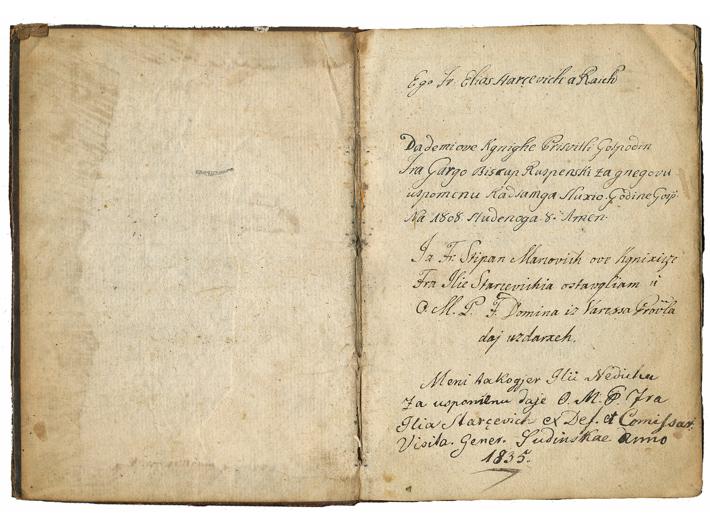 Ego Fr. Elias Starcevich a Raich
Dademi ove Kgnighe Prisvitli Gospodin
Fra Gargo Biskup Ruspenski za gnegovu
uspomenu Kadsamga sluxio. Godine Gosp.
Na 1808. Studenoga. 8. Amen.
Ja Fr. Stipan Marcovich ove Kgnixicze
Fra Ilie Starcevichia ostavgliam ii
O. M. P. F. Domina iz Varessa
daj uzdarxeh.
Meni takogjer Ilii Nedichu
za uspomenu daje O. M. P. Fra
Ilia Starcevich ex Def. et Comissar.
Visita. Gener. Sudinskae anno
1835.